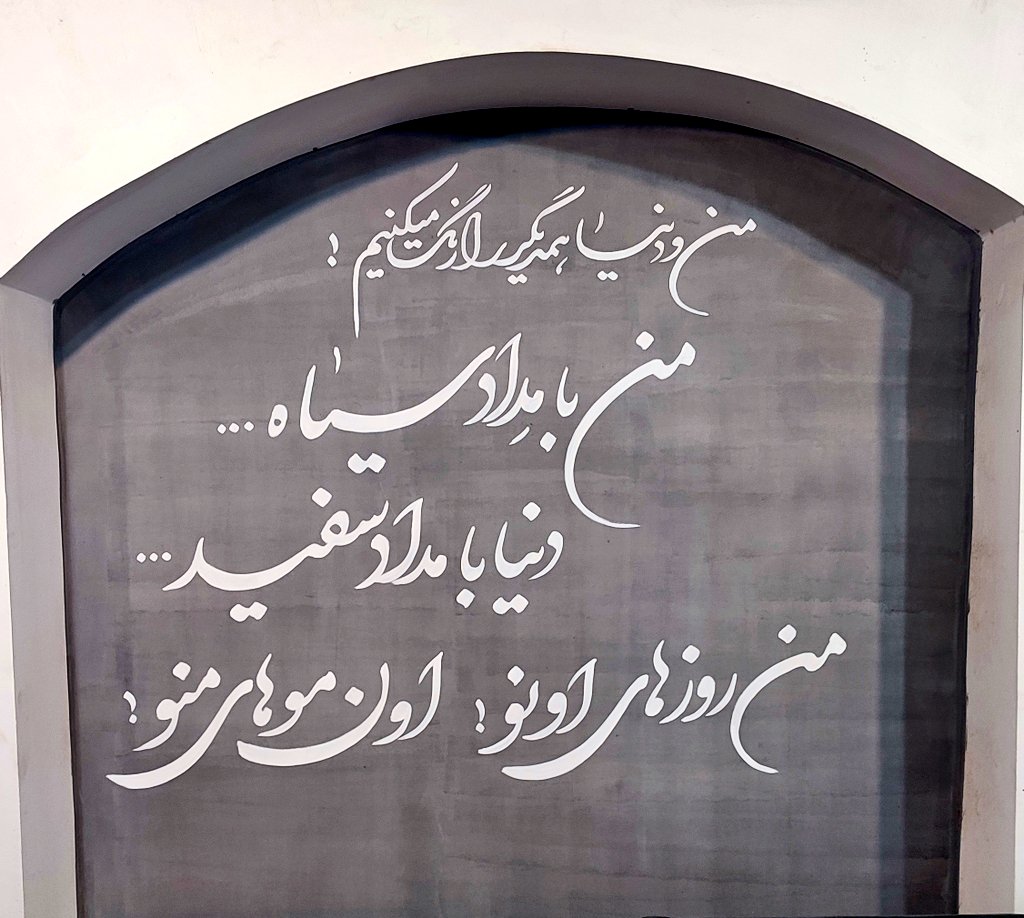 من و دنیا همدیگر را رنگ میکنیم !
من با مِداد سیاه ...
دنیا با مداد سفید ...
من روزهای اونو ! اون موهای منو !